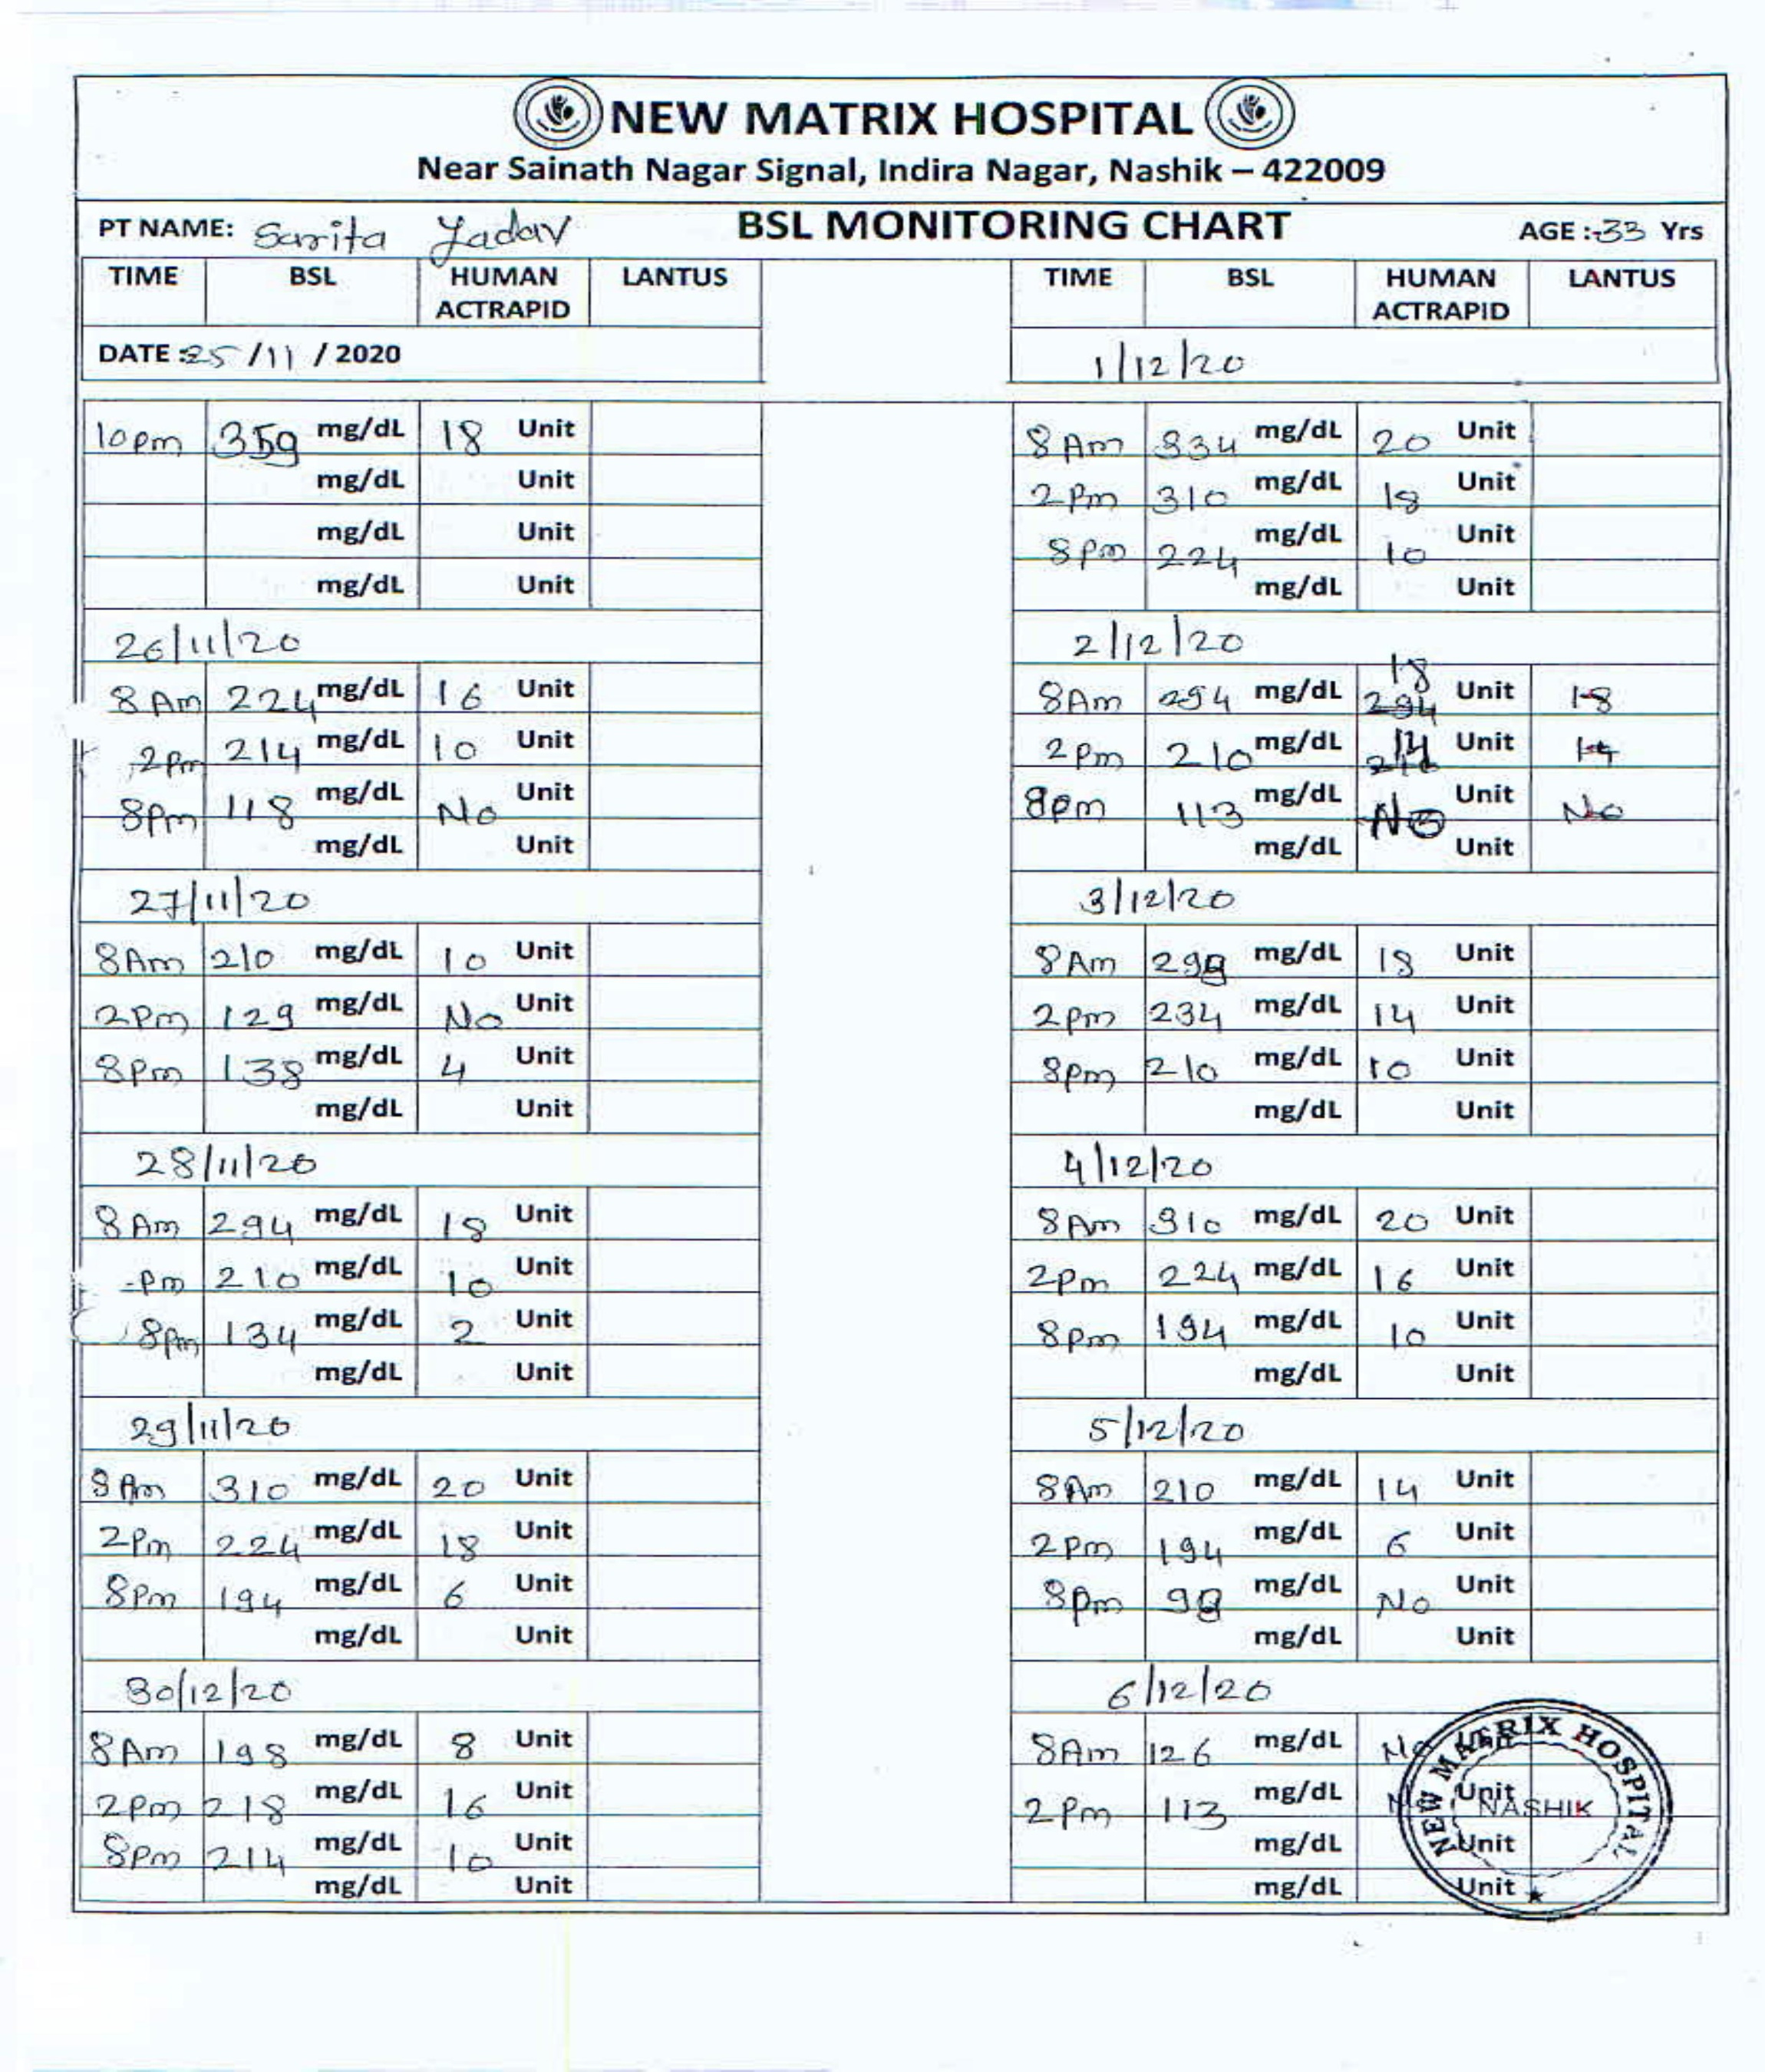 NEW MATRIX HOSPITAL
Near Sainath Nagar Signal, Indira Nagar, Nashik – 422009
PT NAME: Sarita Yadav BSL MONITORING CHART AGE :-33 Yrs
TIME BSL HUMAN ACTRAPID LANTUS
DATE :25/11/2020
10pm 359 mg/dL 18 Unit
mg/dL Unit
mg/dL Unit
mg/dL Unit
26/11/20
8 Am 224 mg/dL 16 Unit
2pm 214 mg/dL 10 Unit
8pm 118 mg/dL No Unit
mg/dL Unit
27/11/20
8Am 210 mg/dL 10 Unit
2pm 129 mg/dL No Unit
8pm 138 mg/dL 4 Unit
mg/dL Unit
28/11/20
8 Am 294 mg/dL 18 Unit
-pm 210 mg/dL 10 Unit
8pm 134 mg/dL 2 Unit
mg/dL Unit
29/11/20
8 Am 310 mg/dL 20 Unit
2pm 224 mg/dL 18 Unit
8pm 194 mg/dL 6 Unit
mg/dL Unit
30/12/20
8Am 198 mg/dL 8 Unit
2pm 218 mg/dL 16 Unit
8pm 214 mg/dL 10 Unit
mg/dL Unit
TIME BSL HUMAN ACTRAPID LANTUS
1/12/20
8 Am 334 mg/dL 20 Unit
2 Pm 310 mg/dL 18 Unit
8 pm 224 mg/dL 10 Unit
mg/dL Unit
2/12/20
8Am 294 mg/dL 18 294 Unit 18
2pm 210 mg/dL 14 Unit 14
8pm 113 mg/dL No Unit No
mg/dL Unit
3/12/20
8Am 298 mg/dL 18 Unit
2pm 234 mg/dL 14 Unit
8pm 210 mg/dL 10 Unit
mg/dL Unit
4/12/20
8Am 310 mg/dL 20 Unit
2pm 224 mg/dL 16 Unit
8pm 194 mg/dL 10 Unit
mg/dL Unit
5/12/20
8Am 210 mg/dL 14 Unit
2pm 194 mg/dL 6 Unit
8pm 98 mg/dL No Unit
mg/dL Unit
6/12/20
8Am 126 mg/dL No Unit
2pm 113 mg/dL Unit
mg/dL Unit
mg/dL Unit
NEW MATRIX HOSPITAL
NASHIK